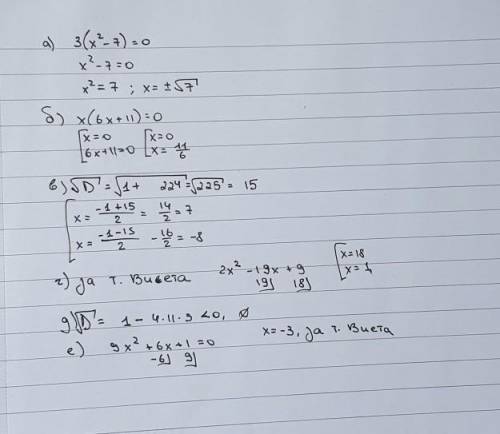 а) 3(x² - 7) = 0
x² - 7 = 0
x² = 7 ; x = ±√7
б) x(6x + 11) = 0
[x = 0 [x = 0
6x + 11 = 0 x = 11/6
в) √D = √1 + 224 = √225 = 15
[x = (-1+15)/2 = 14/2 = 7
x = (-1-15)/2 - 16/2 = -8
г) за т. Виета 2x² - 19x + 9 [x = 18
19 18 x = 1
g) √D = 1 - 4·11·9 < 0, ∅
е) 9x² + 6x + 1 = 0 x = -3, за т. Виета
-6 9